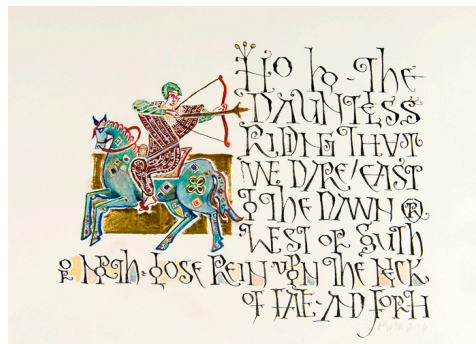 Ho ho - The
DAUNTLESS
RIDING THAT
WE DARE! EAST
TO THE DAWN OR
WEST OR SOUTH
OR NORTH - LOOSE REIN UPON THE NECK
OF FATE - AND FORTH